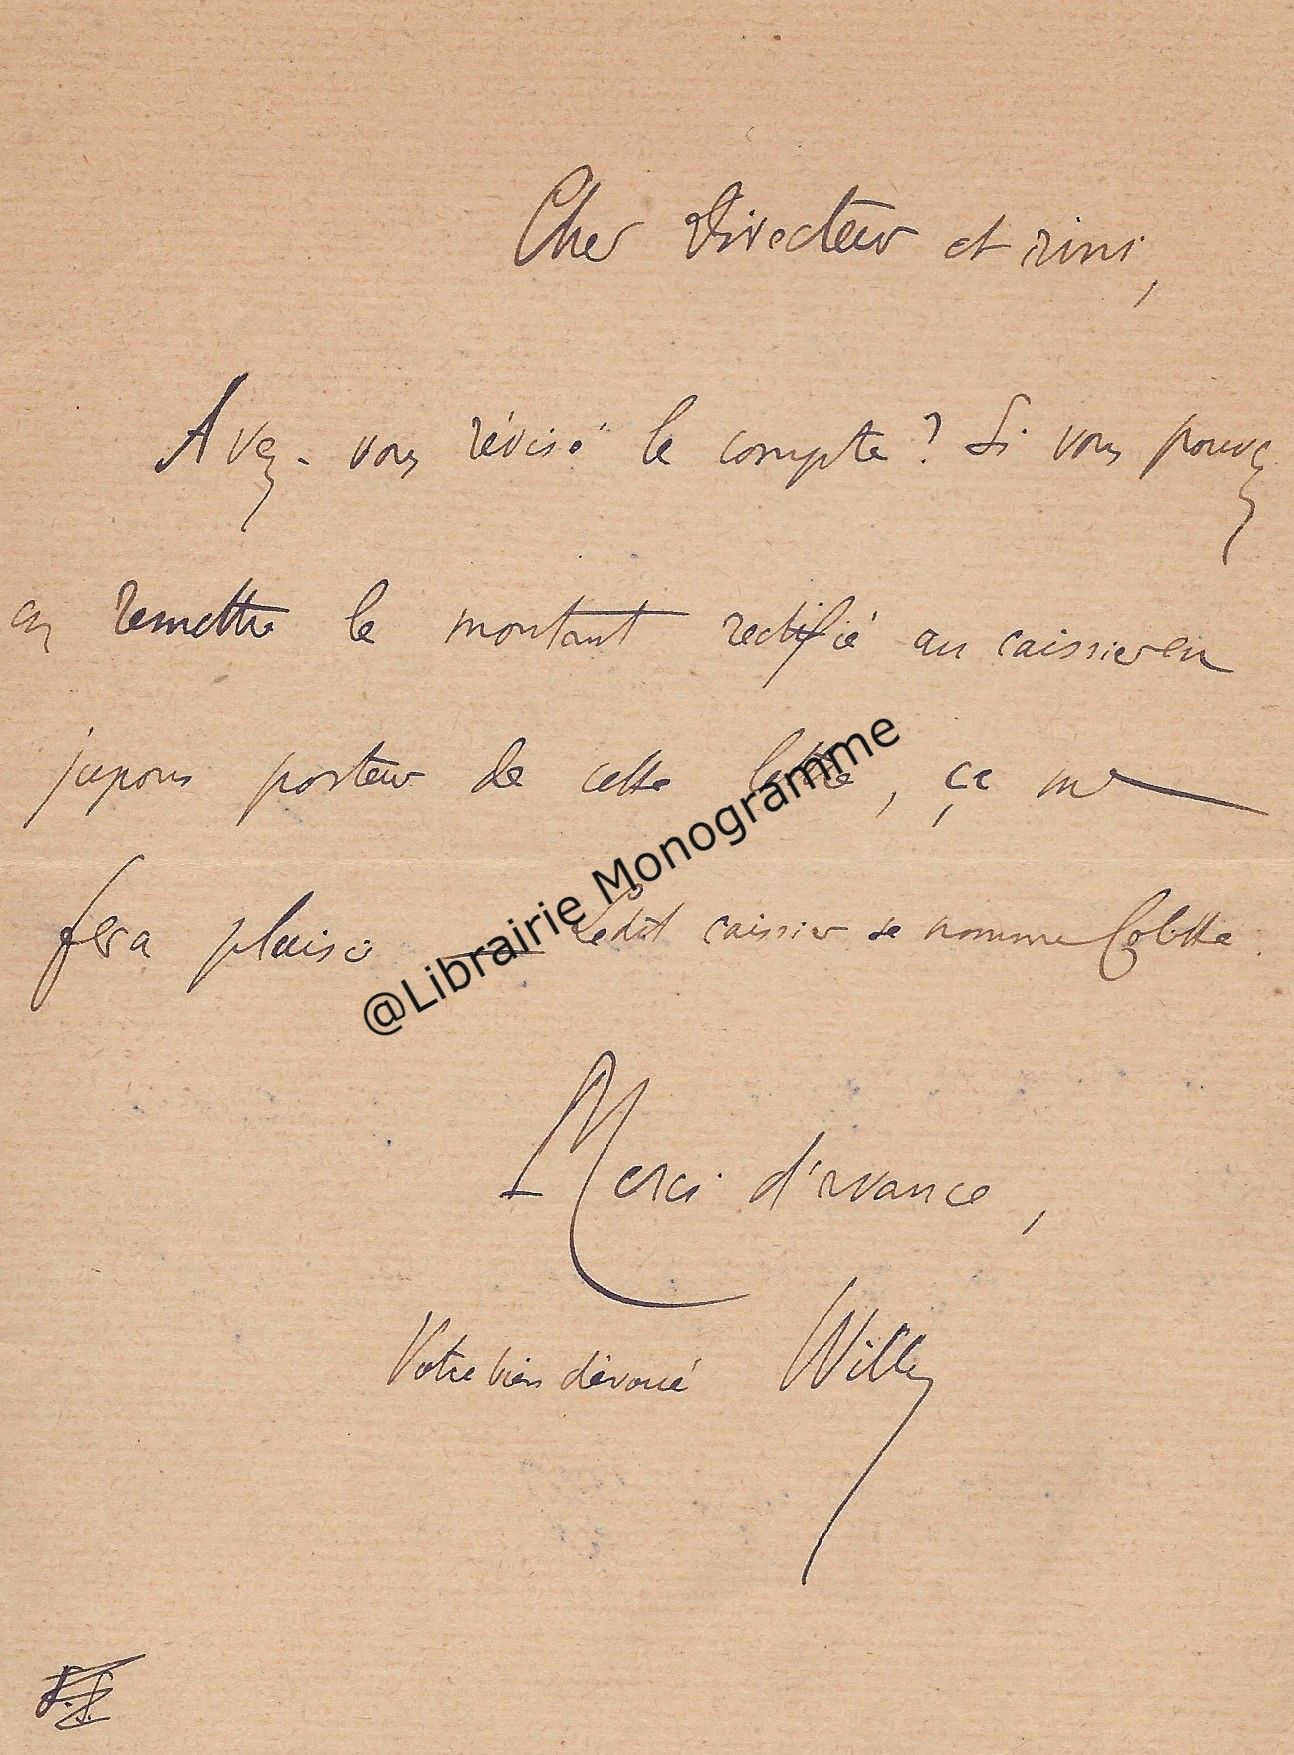 Cher Directeur et ami,
Avez-vous révisé le compte ? Si vous pouvez
en remettre le montant rectifié au caissier en
jupons porteur de cette lettre, ça me
fera plaisir — Ledit caissier se nomme Colette.
@Librairie Monogramme
Merci d'avance,
Votre bien dévoué Willy
P.S.